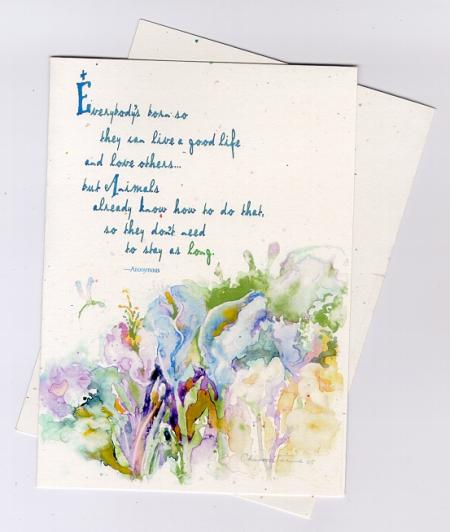 Everybody's born so
they can live a good life
and love others...
but Animals
already know how to do that,
so they don't need
to stay as long.
—Anonymous